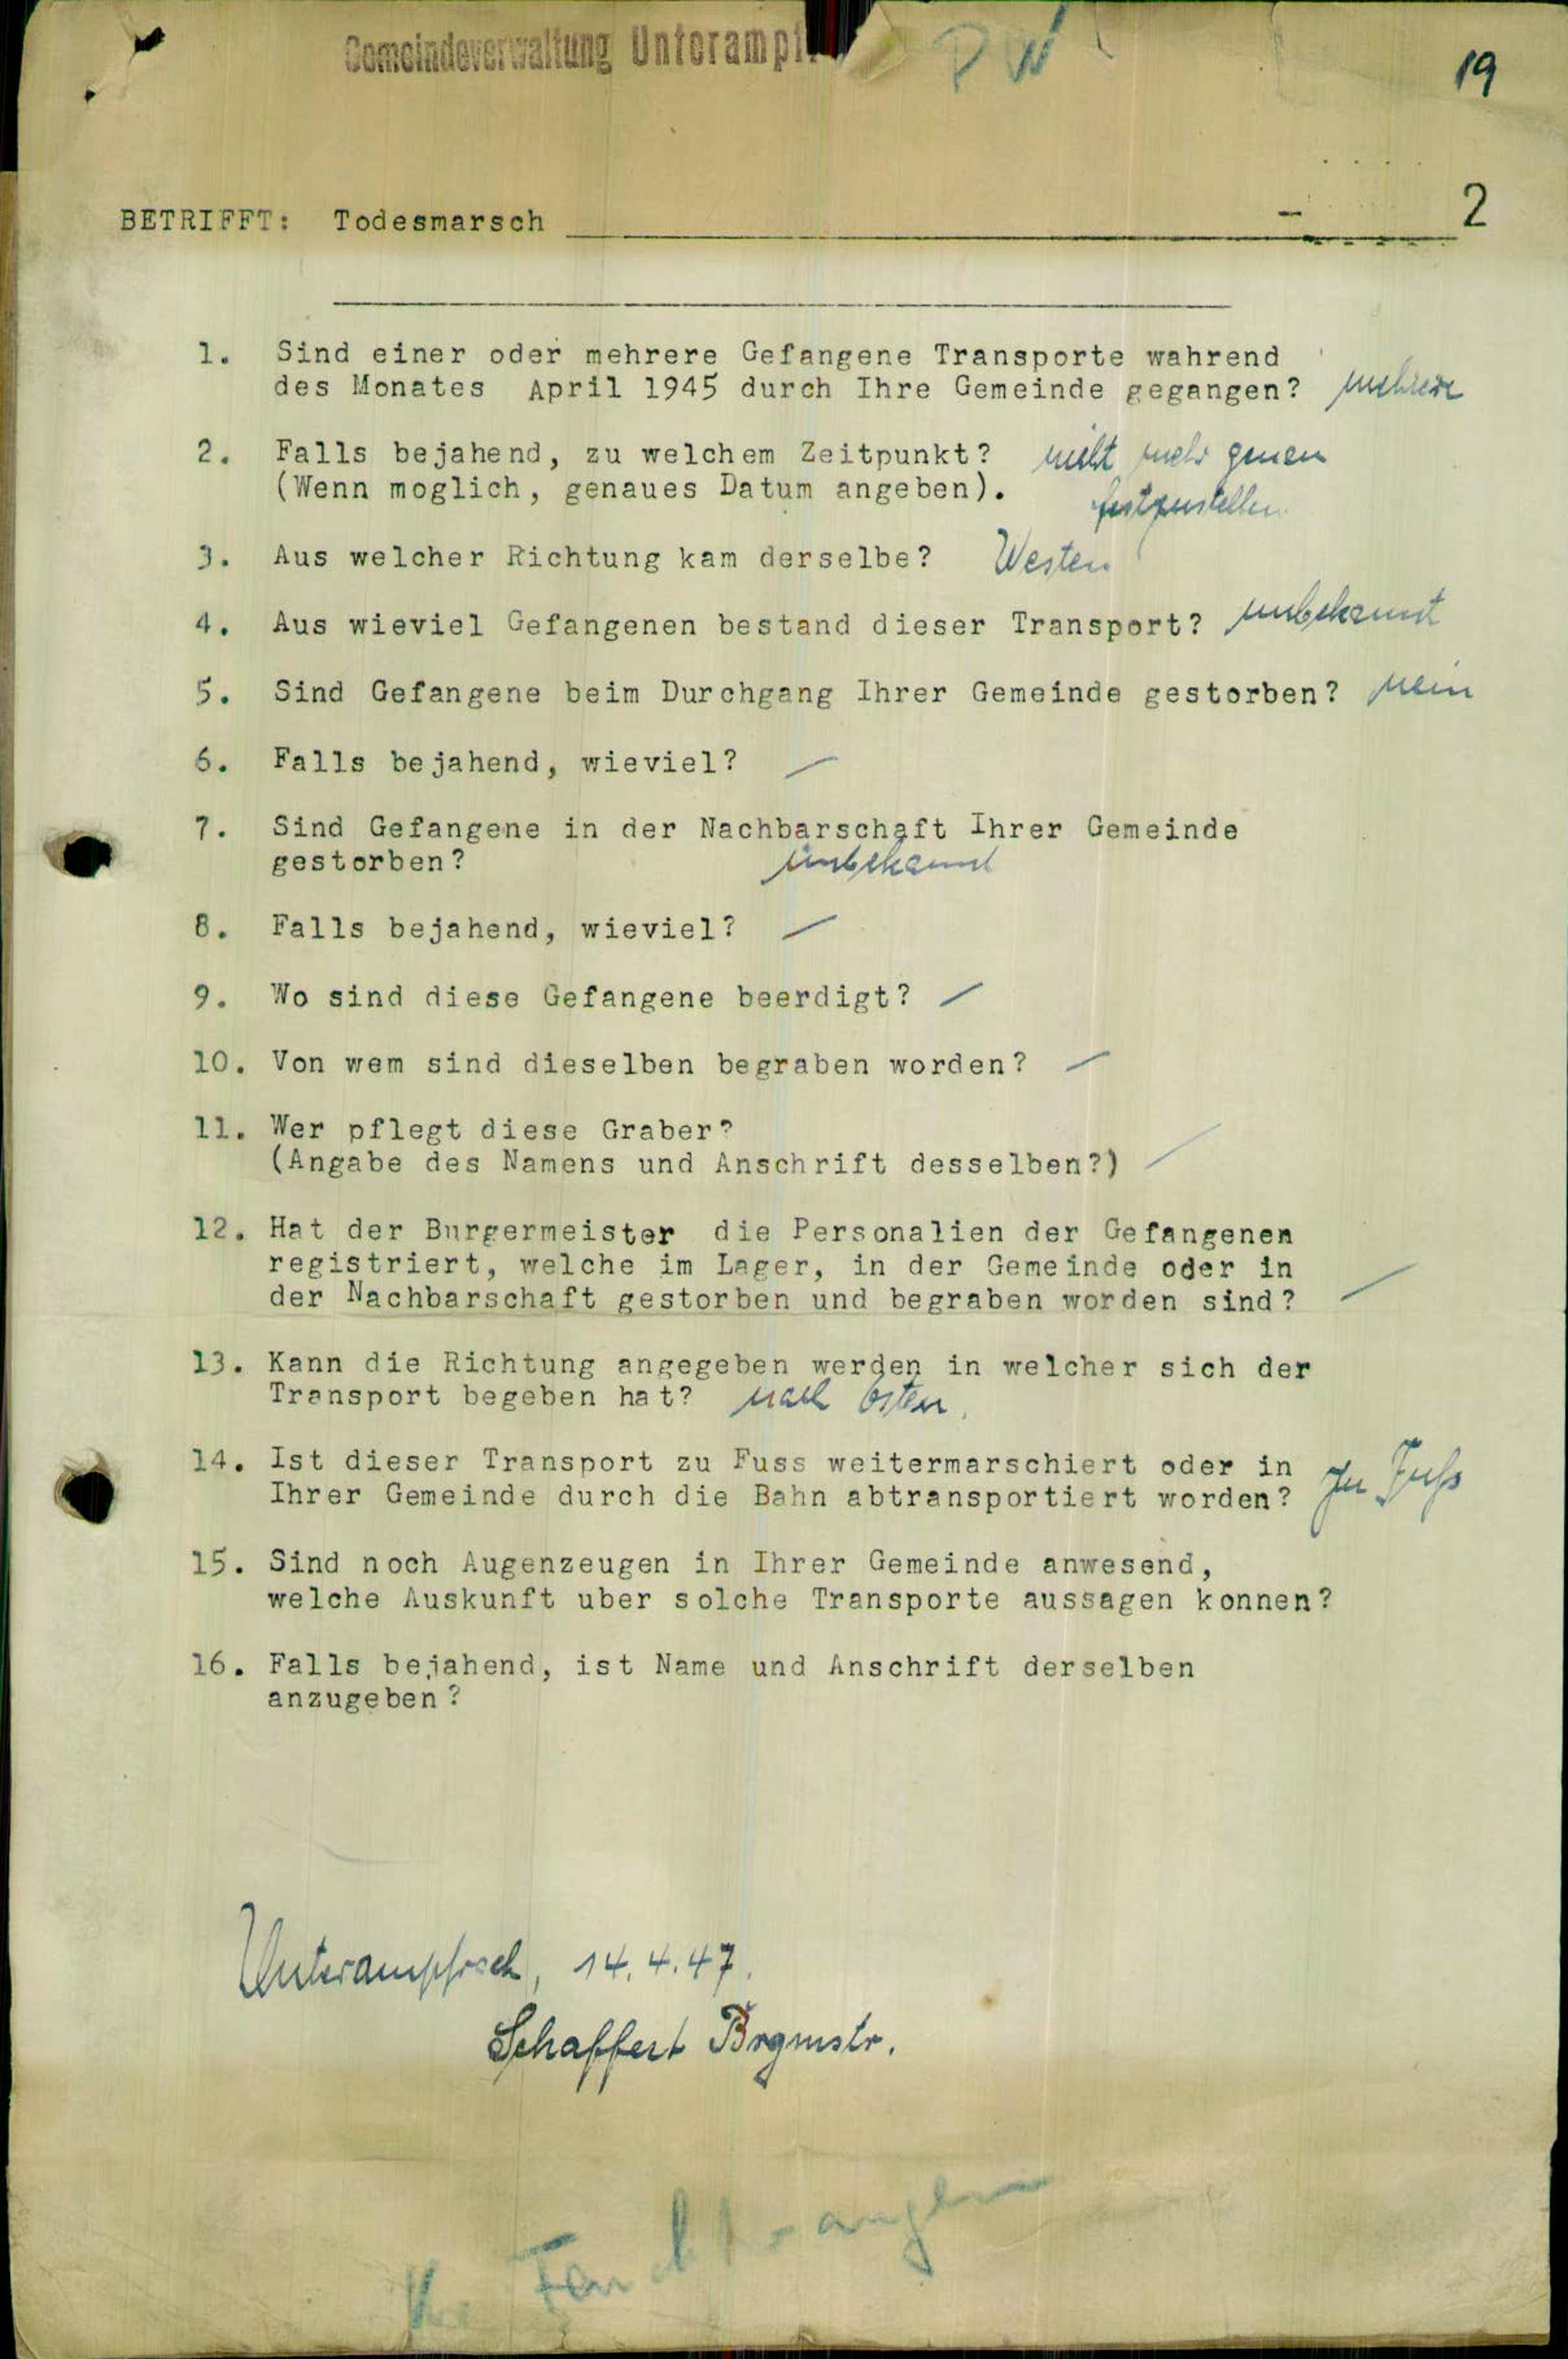 Gemeindeverwaltung Unterampf
PW
19
BETRIFFT: Todesmarsch
2
1. Sind einer oder mehrere Gefangene Transporte wahrend
des Monates April 1945 durch Ihre Gemeinde gegangen? mehrere
2. Falls bejahend, zu welchem Zeitpunkt? nicht mehr genau
(Wenn moglich, genaues Datum angeben). festzustellen
3. Aus welcher Richtung kam derselbe? Westen
4. Aus wieviel Gefangenen bestand dieser Transport? unbekannt
5. Sind Gefangene beim Durchgang Ihrer Gemeinde gestorben? nein
6. Falls bejahend, wieviel? —
7. Sind Gefangene in der Nachbarschaft Ihrer Gemeinde
gestorben? unbekannt
8. Falls bejahend, wieviel? —
9. Wo sind diese Gefangene beerdigt? —
10. Von wem sind dieselben begraben worden? —
11. Wer pflegt diese Graber?
(Angabe des Namens und Anschrift desselben?) —
12. Hat der Burgermeister die Personalien der Gefangenen
registriert, welche im Lager, in der Gemeinde oder in
der Nachbarschaft gestorben und begraben worden sind? —
13. Kann die Richtung angegeben werden in welcher sich der
Transport begeben hat? nach Osten.
14. Ist dieser Transport zu Fuss weitermarschiert oder in
Ihrer Gemeinde durch die Bahn abtransportiert worden? zu Fuß
15. Sind noch Augenzeugen in Ihrer Gemeinde anwesend,
welche Auskunft uber solche Transporte aussagen konnen?
16. Falls bejahend, ist Name und Anschrift derselben
anzugeben?
Unterampfrach, 14.4.47.
Schaffert Brgmstr.